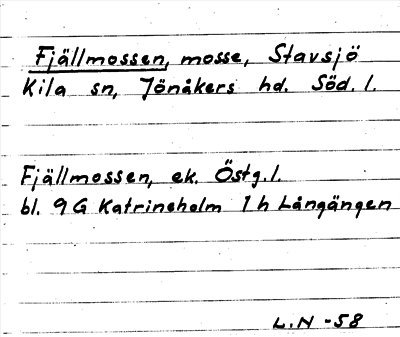 Fjällmossen, mosse, Stavsjö
Kila sn, Jönåkers hd. Söd. l.
Fjällmossen, ek. Östg. l.
bl. 9 G Katrineholm 1 h Långängen
L.N -58